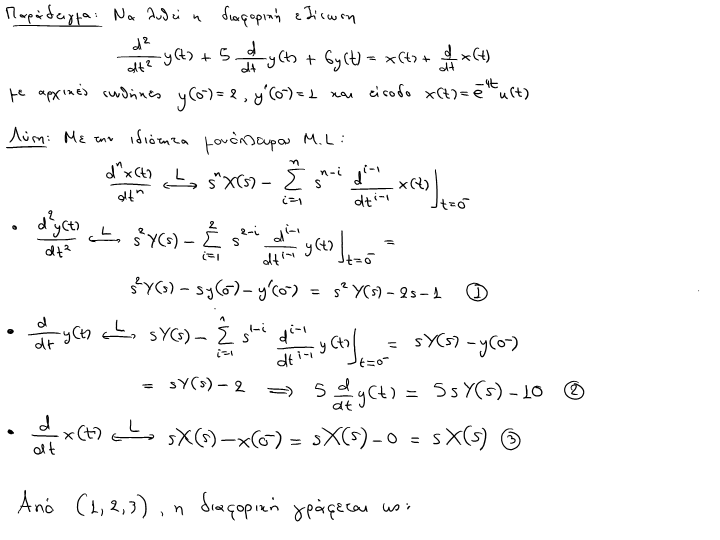 Παράδειγμα: Να λυθεί η διαφορική εξίσωση
d²/dt² y(t) + 5 d/dt y(t) + 6y(t) = x(t) + d/dt x(t)
με αρχικές συνθήκες y(0⁻)=2, y'(0⁻)=1 και είσοδο x(t)=e^{-4t}u(t)
Λύση: Με την ιδιότητα μονόπλευρου Μ.L:
dⁿx(t)/dtⁿ ⟷ᴸ sⁿX(s) − Σ_{i=1}^{n} s^{n-i} d^{i-1}/dt^{i-1} x(t)]_{t=0⁻}
• d²y(t)/dt² ⟷ᴸ s²Y(s) − Σ_{i=1}^{2} s^{2-i} d^{i-1}/dt^{i-1} y(t)]_{t=0⁻} =
s²Y(s) − sy(0⁻) − y'(0⁻) = s²Y(s) − 2s − 1 ①
• d/dt y(t) ⟷ᴸ sY(s) − Σ_{i=1}^{1} s^{1-i} d^{i-1}/dt^{i-1} y(t)]_{t=0⁻} = sY(s) − y(0⁻)
= sY(s) − 2 ⟹ 5 d/dt y(t) = 5sY(s) − 10 ②
• d/dt x(t) ⟷ᴸ sX(s) − x(0⁻) = sX(s) − 0 = sX(s) ③
Από (1,2,3), η διαφορική γράφεται ως: